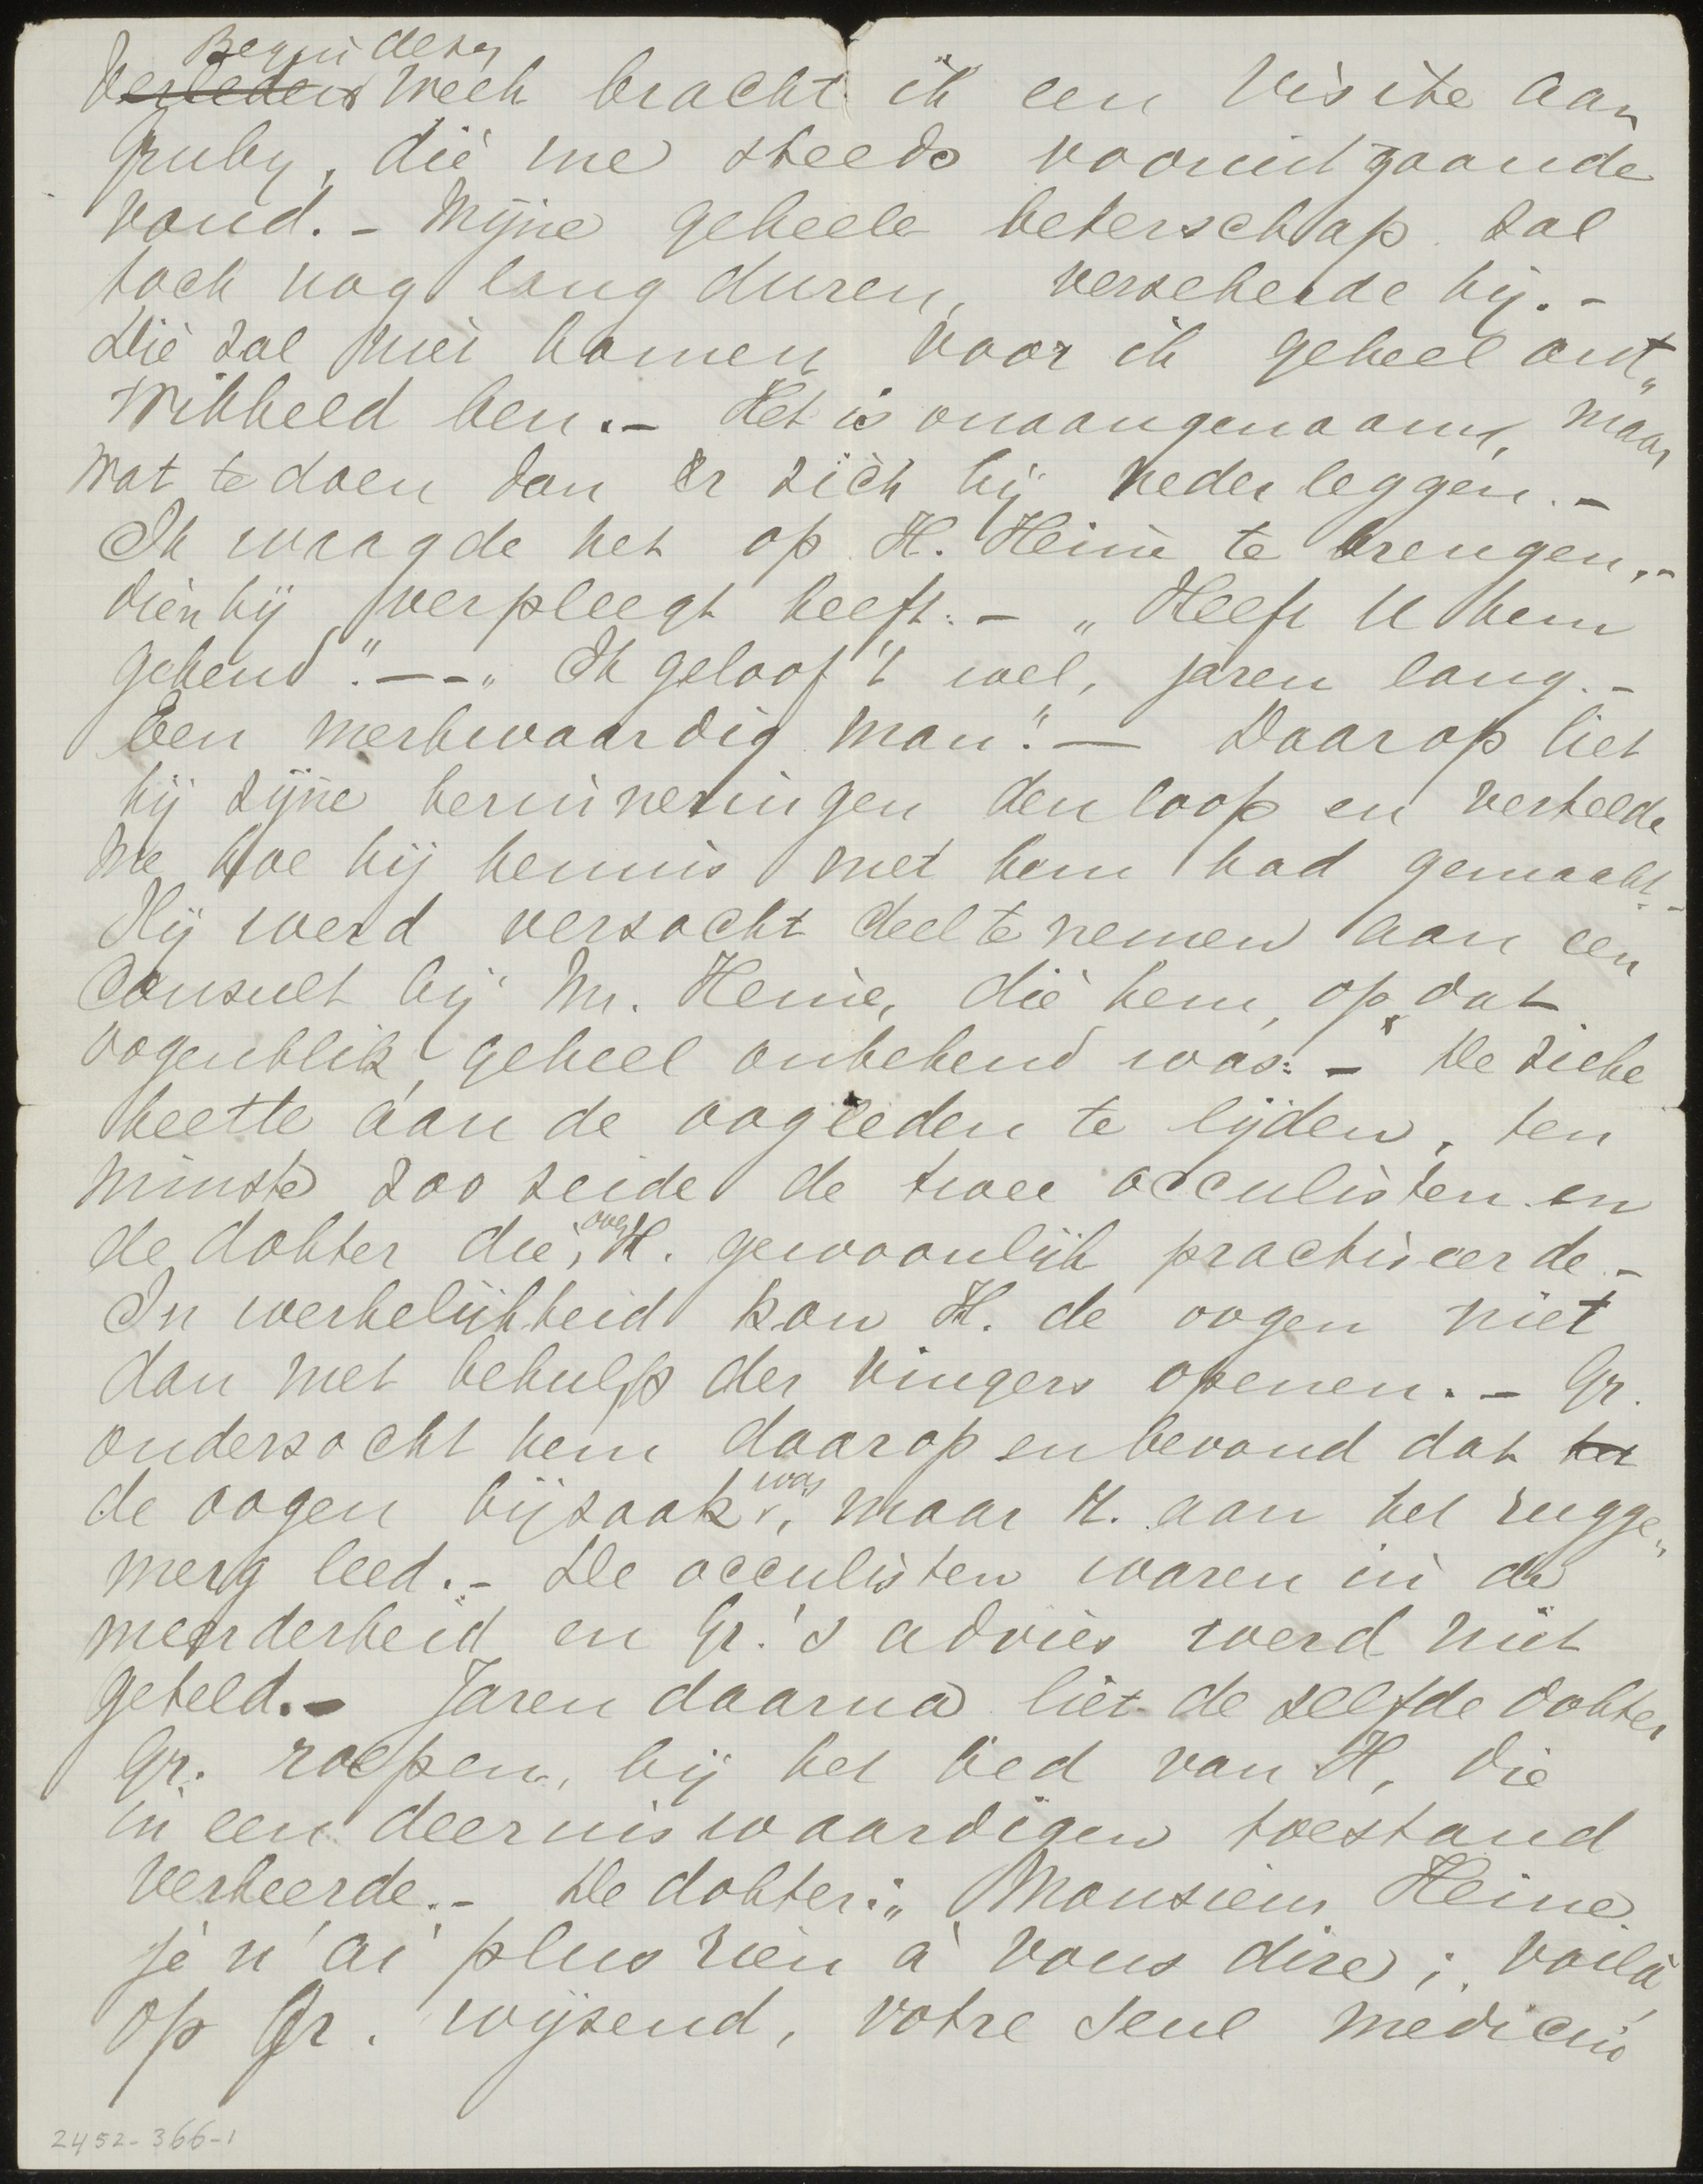 Begin dezer
Verleden week bracht ik een visite aan
Gruby, die me steeds vooruitgaande
vond. – Mijne geheele beterschap zal
toch nog lang duren, verzekerde hij. –
Die zal niet komen voor ik geheel ont„
wikkeld ben. – Het is onaangenaam, maar
wat te doen dan er zich bij neder leggen. –
Ik waagde het op H. Heine te brengen, –
dien hij verpleegt heeft. – „Heeft U hem
gekend". – – „Ik geloof 't wel, jaren lang. –
Een merkwaardig man." – Daarop liet
hij zijne herinneringen den loop en vertelde
me hoe hij kennis met hem had gemaakt. –
Hij werd verzocht deel te nemen aan een
consult bij Mr. Heine, die hem, op dat
oogenblik, geheel onbekend was. – De zieke
heette aan de oogleden te lijden, ten
minste zoo zeide de twee occulisten en
de dokter die, over H. gewoonlijk practiseerde. –
In werkelijkheid kon H. de oogen niet
dan met behulp der vingers openen. – Gr.
onderzocht hem daarop en bevond dat het
de oogen bijzaak was, maar H. aan het rugge„
merg leed. – De occulisten waren in de
meerderheid en Gr.'s advies werd niet
geteld. – Jaren daarna liet de zelfde dokter
Gr. roepen, bij het bed van H, die
in een deerniswaardigen toestand
verkeerde. – De dokter: „Monsieur Heine
je n'ai plus rien à vous dire; voilà,
op Gr. wijzend, votre seul médecin
2452-366-1